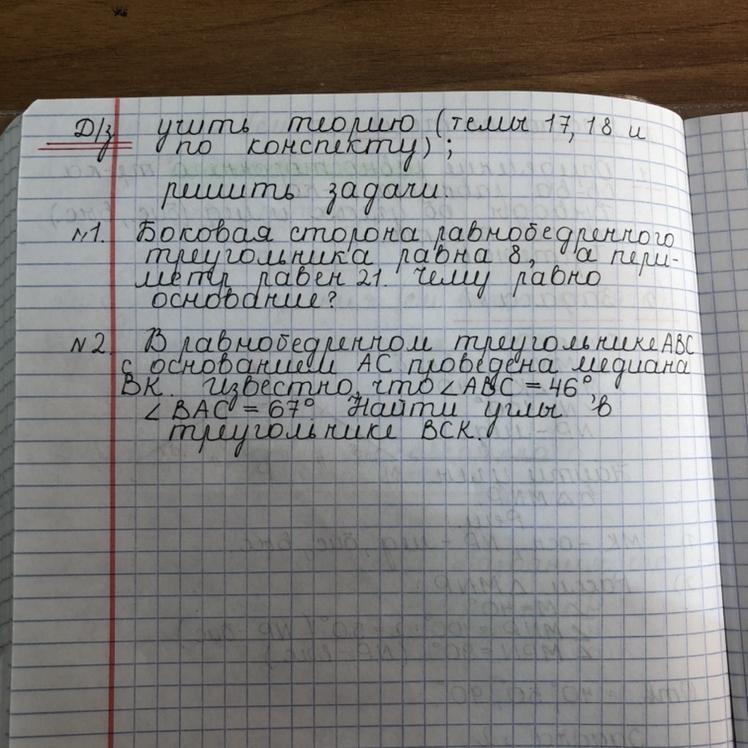 Д/з учить теорию (темы 17, 18 и
по конспекту);
решить задачи:
№1. Боковая сторона равнобедренного
треугольника равна 8, а пери-
метр равен 21. Чему равно
основание?
№2. В равнобедренном треугольнике ABC
с основанием AC проведена медиана
BK. Известно, что ∠ABC = 46°,
∠BAC = 67° Найти углы в
треугольнике BCK.